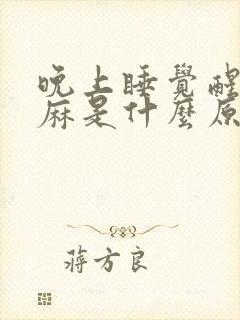 晚上睡覺醒
麻是什麼原
蔣方良